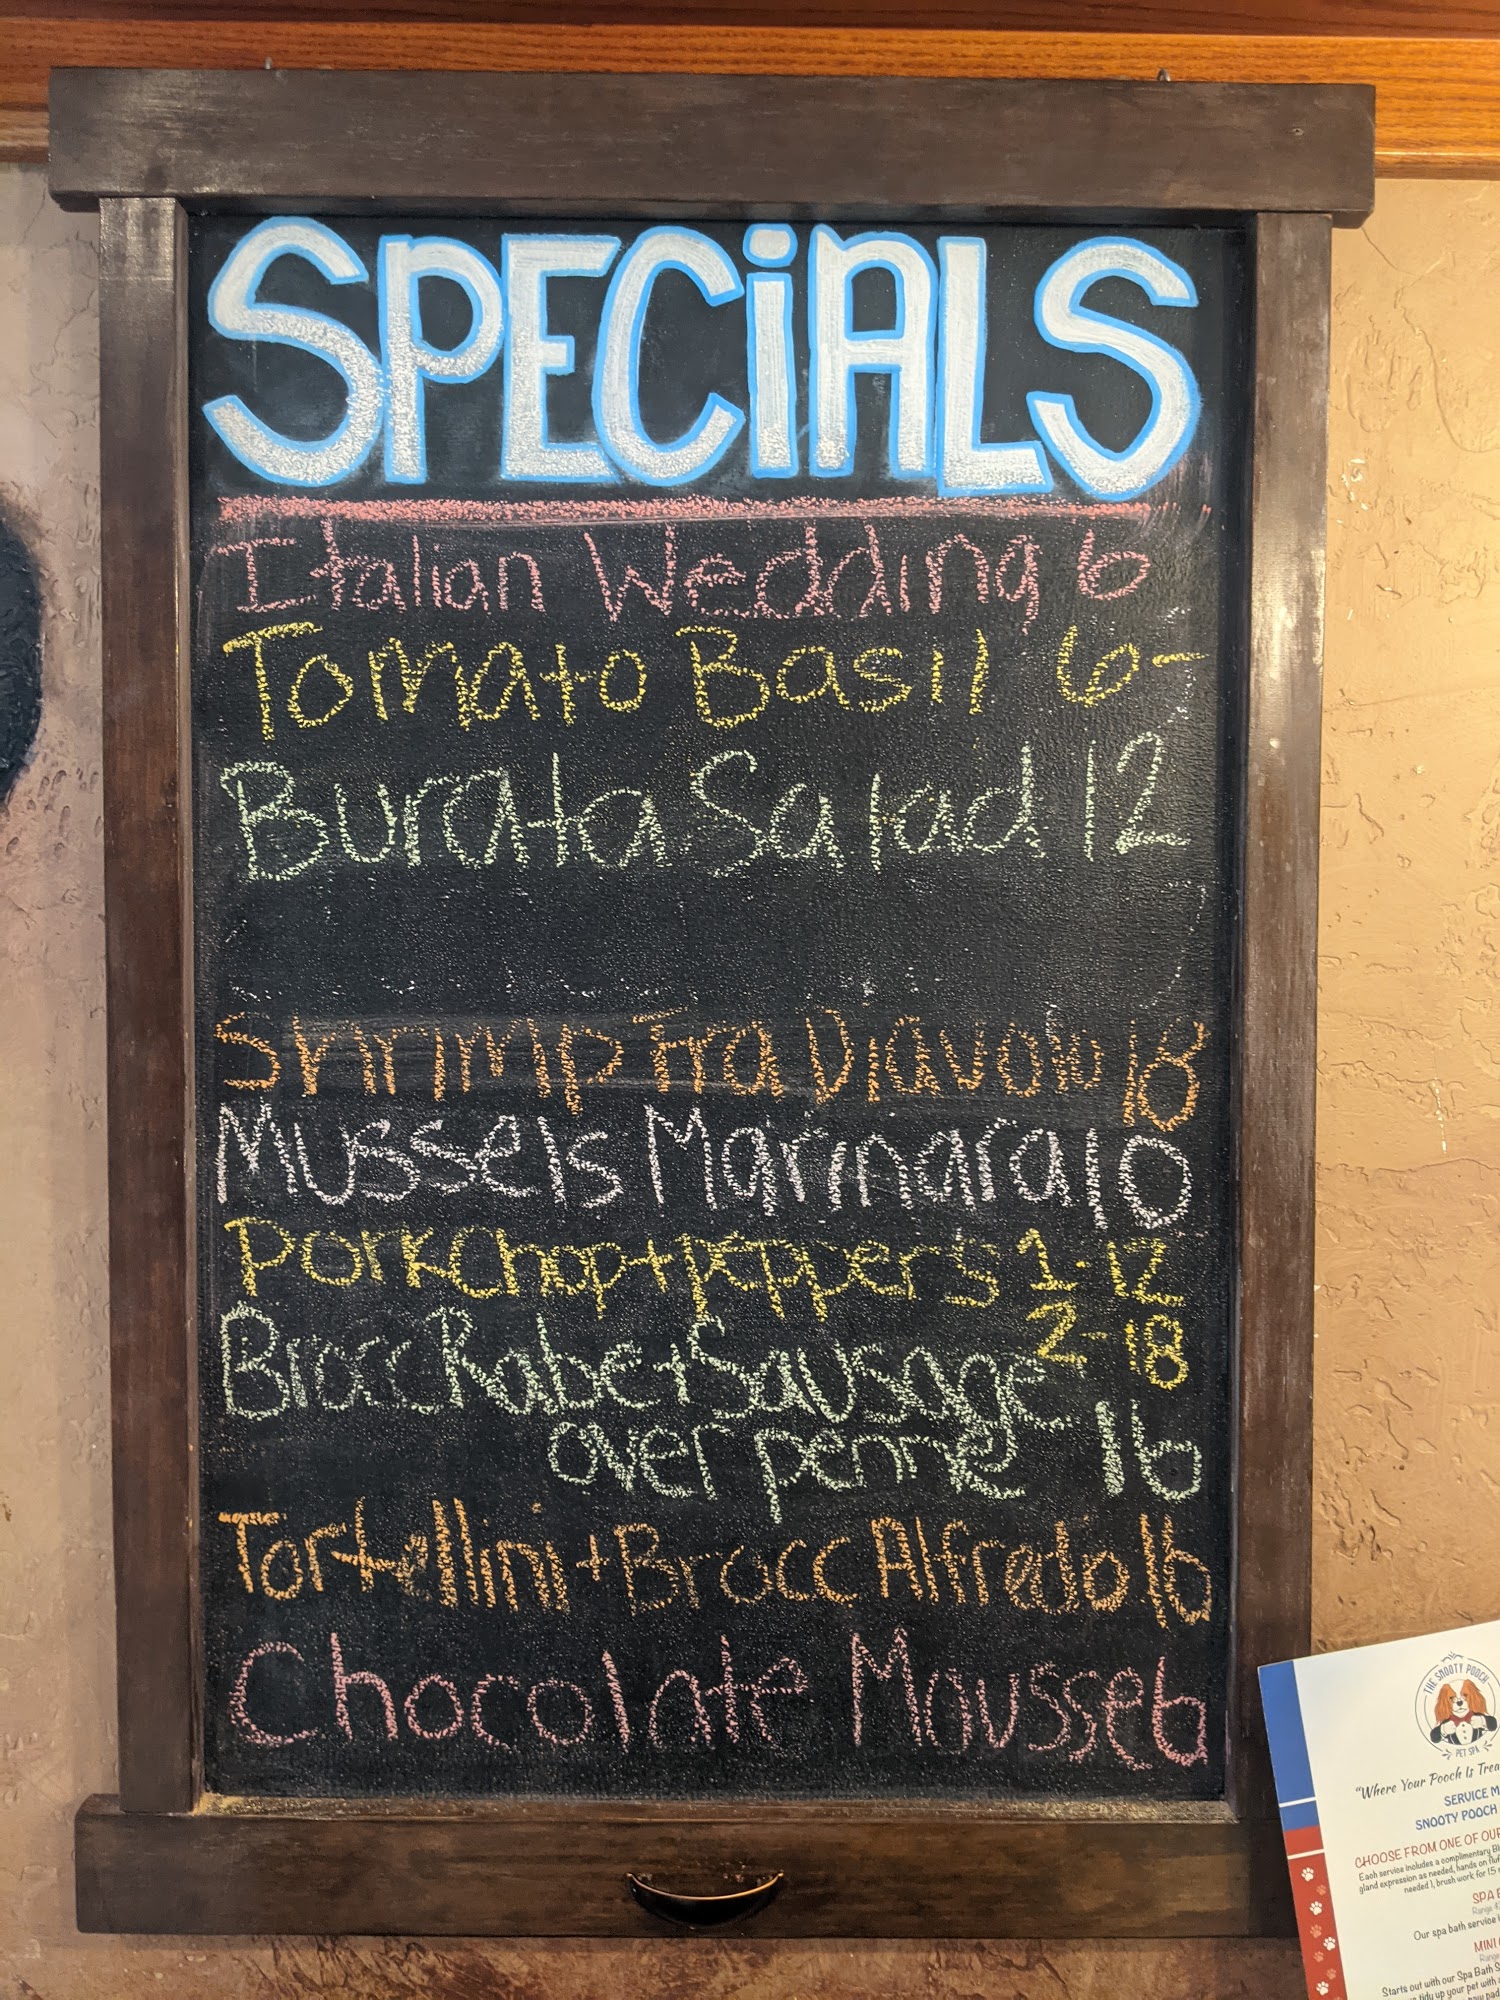 SPECiALS
Italian Wedding 6
Tomato Basil 6-
Burata Salad 12
Shrimp Fra Diavolo 18
Mussels Marinara 10
Pork Chop + peppers 1-12
2-18
Brocc Rabe + Sausage
over penne 16
Tortellini + Brocc Alfredo 16
Chocolate Mousse 6
THE SNOOTY POOCH
PET SPA
"Where Your Pooch Is Trea
SERVICE M
SNOOTY POOCH
CHOOSE FROM ONE OF OUR
Each service includes a complimentary Bl
gland expression as needed, hands on fluf
needed ), brush work for 15
SPA B
Range
Our spa bath service
MINI
Range
Starts out with our Spa Bath S
tidy up your pet with